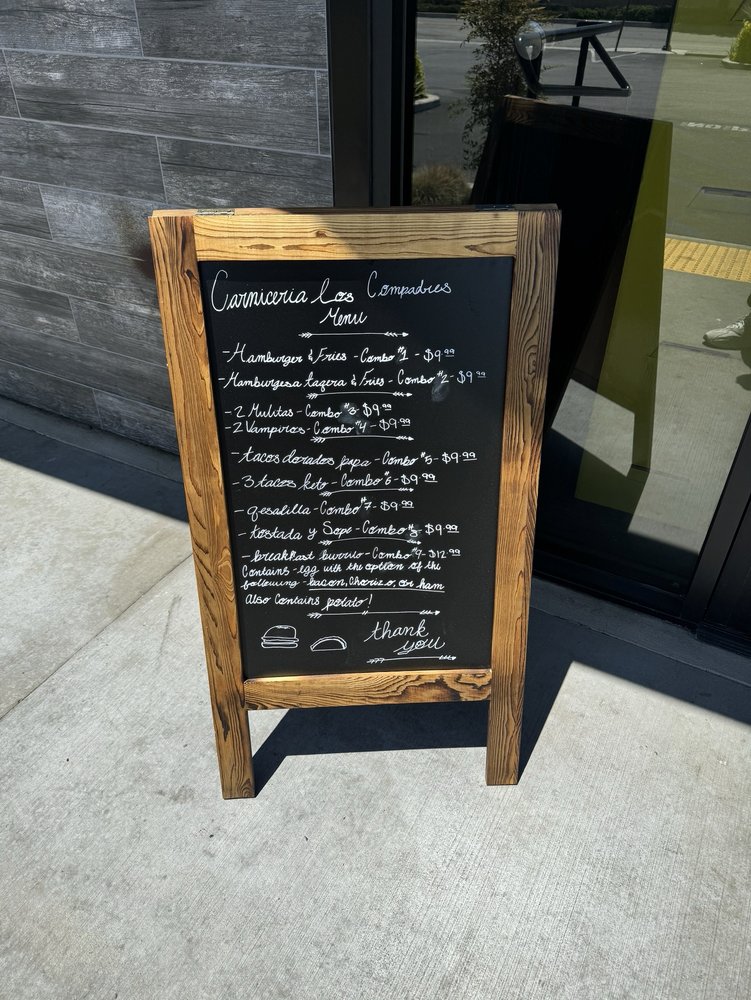 Carniceria Los Compadres
Menu
- Hamburger & Fries - Combo #1 - $9.99
- Hamburgesa tagera & Fries - Combo #2 - $9.99
- 2 Mulitas - Combo #3 - $9.99
- 2 Vampiros - Combo #4 - $9.99
- tacos dorados papa - Combo #5 - $9.99
- 3 tacos keto - Combo #6 - $9.99
- qesalilla - Combo #7 - $9.99
- tostada y Sope - Combo - $9.99
- breakfast burrito - Combo #9 - $12.99
Contains - egg with the option of the
following - bacon, Chorizo, or ham
Also Contains potato!
thank
you